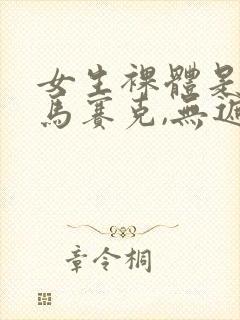 女生裸體是
馬賽克,無遮
章令桐